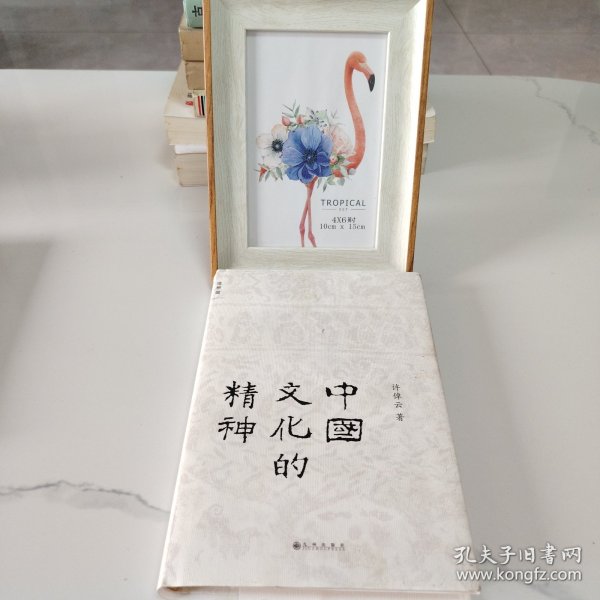 TROPICAL
SET
4X6吋
10cm x 15cm
中國
文化的
精神
许倬云 著
九州出版社
孔夫子旧书网
www.kongfz.com